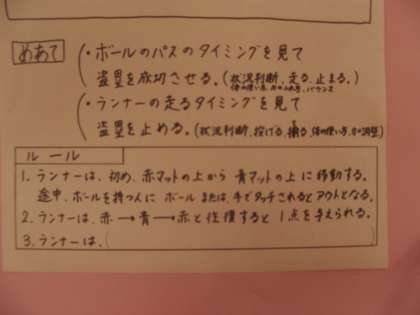 めあて
・ボールのパスのタイミングを見て
盗塁を成功させる。(状況判断、走る、止まる。)
体の使い方、力の入れ方、バランス
・ランナーの走るタイミングを見て
盗塁を止める。(状況判断、投げる、捕る、体の使い方、力の調整)
ルール
1. ランナーは、初め、赤マットの上から青マットの上に移動する。
途中、ボールを持つ人にボールまたは、手でタッチされるとアウトとなる。
2. ランナーは、赤→青→赤と往復すると1点を与えられる。
3. ランナーは、( )